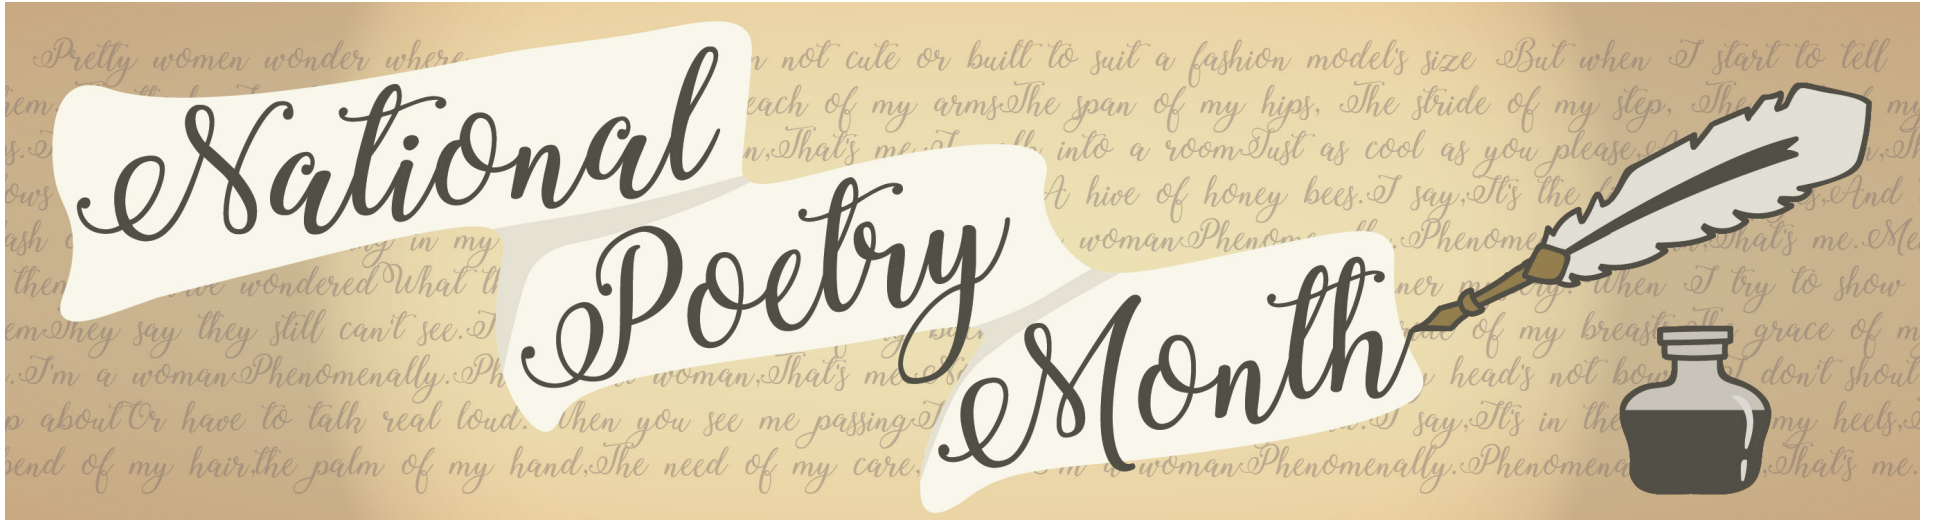 National
Poetry
Month
Pretty women wonder where not cute or built to suit a fashion model's size But when I start to tell
each of my armsThe span of my hips, The stride of my step, The my
That's me. I into a roomJust as cool as you please,
A hive of honey bees.I say,It's the And
in my womanPhenomenally.Phenome That's me.Me
wondered What th ner mystery. When I try to show
They say they still can't see.I of my breasts The grace of m
.I'm a womanPhenomenally.Ph woman,That's me head's not bow I don't shout
aboutOr have to talk real loud. When you see me passing I say,It's in the my heels,
bend of my hair,the palm of my hand,The need of my care, womanPhenomenally.Phenomena ,That's me.